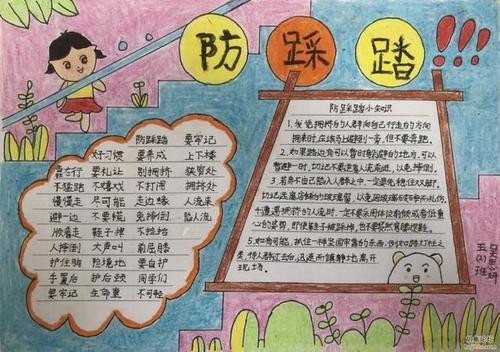 防踩踏!!!
防踩踏 要牢记
好习惯 要养成 上下楼
靠右行 要礼让 别拥挤 狭窄处
不猛跑 不嬉戏 不打闹 拥挤处
慢慢走 尽可能 走边缘 人流来
避一边 不要慌 免摔倒 陷人流
顺着走 鞋子掉 不捡拾
人摔倒 大声叫 前屈膝
护住胸 险境地 要自护
手置后 护后颈 同学们
要牢记 生命重 不可轻
防踩踏小知识
1.发觉拥挤的人群向自己行走的方向
拥来时,应该马上避到一旁,但不要奔跑.
2.如果路边有可以暂时躲避的地方,可以
暂避一时,切记不要逆着人流前进,以免摔倒.
3.若身不由己陷入人群之中,一定要先稳住双脚,
切记远离店铺的玻璃窗,以免因玻璃破碎而被扎伤.
4.遭遇拥挤的人流时,一定不要采用体位前倾或者低重
心的姿势,即便鞋子被踩掉,也不要贸然弯腰提鞋.
5.如有可能,抓住一样坚固牢靠的东西,例如路灯柱之
类,待人群过去后,迅速而镇静地离开
现场.
五(2)班